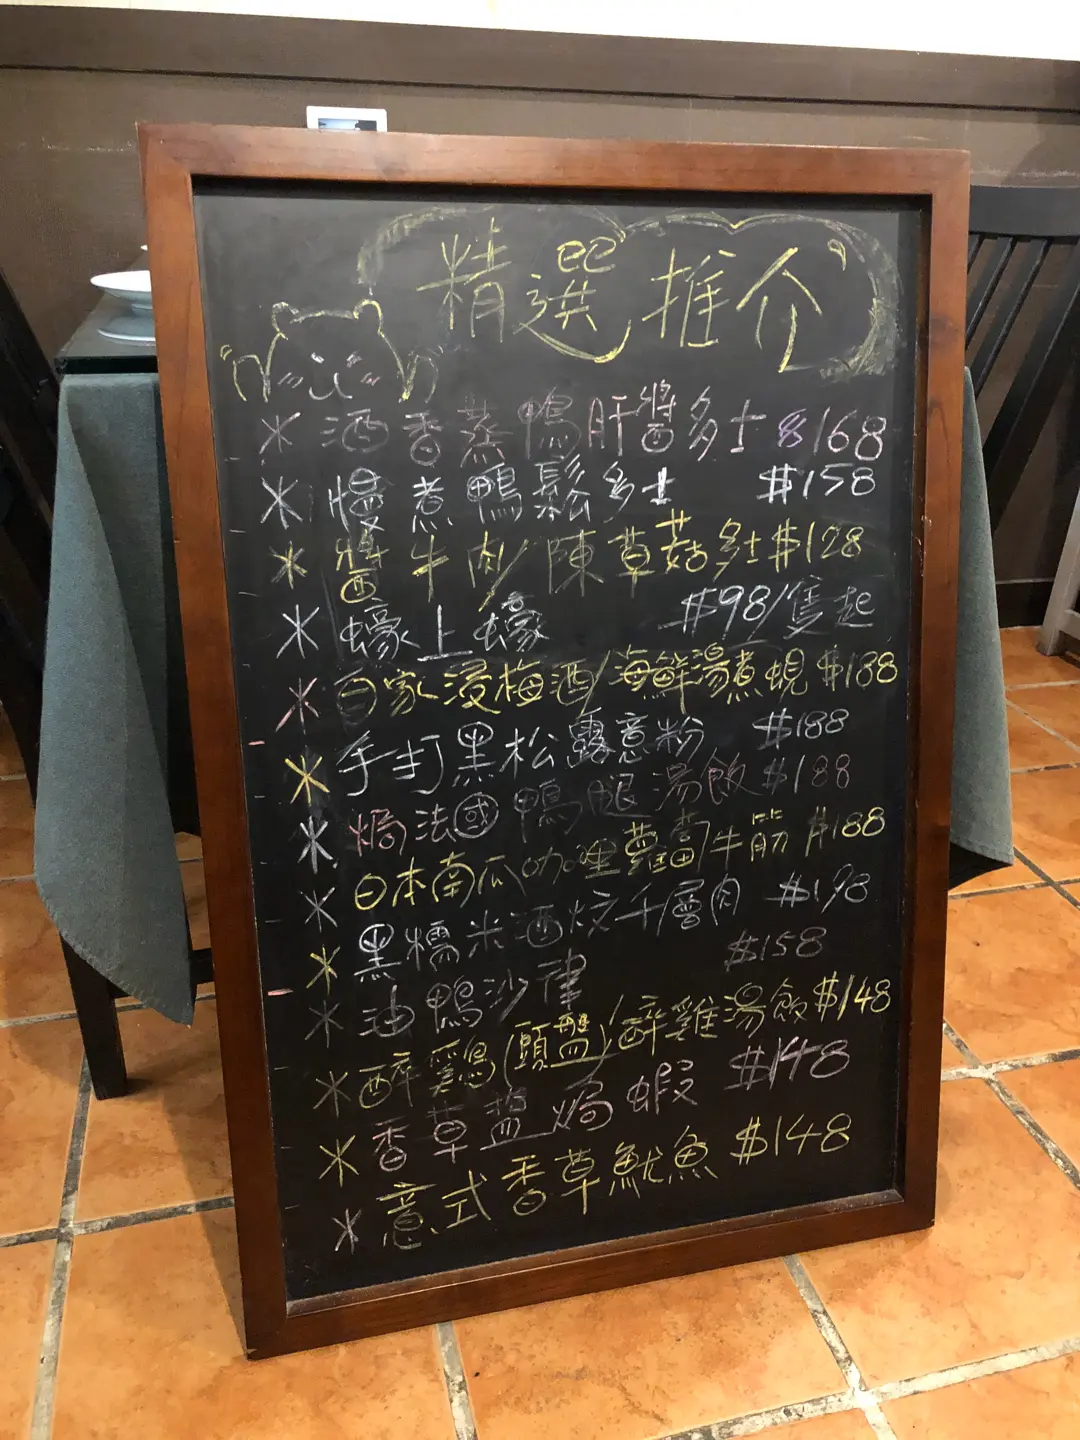 精選推介
＊酒香蒸鴨肝醬多士 $168
＊慢煮鴨鬆多士 $158
＊醬牛肉/陳草菇多士 $128
＊蠔上蠔 $98/隻起
＊自家浸梅酒/海鮮湯煮蜆 $188
＊手打黑松露意粉 $188
＊焗法國鴨腿湯飯 $188
＊日本南瓜咖哩蘿蔔牛筋 $188
＊黑糯米酒炆千層肉 $198
＊油鴨沙律 $158
＊醉鷄(頭盤)/醉雞湯飯 $148
＊香草盐焗蝦 $148
＊意式香草魷魚 $148